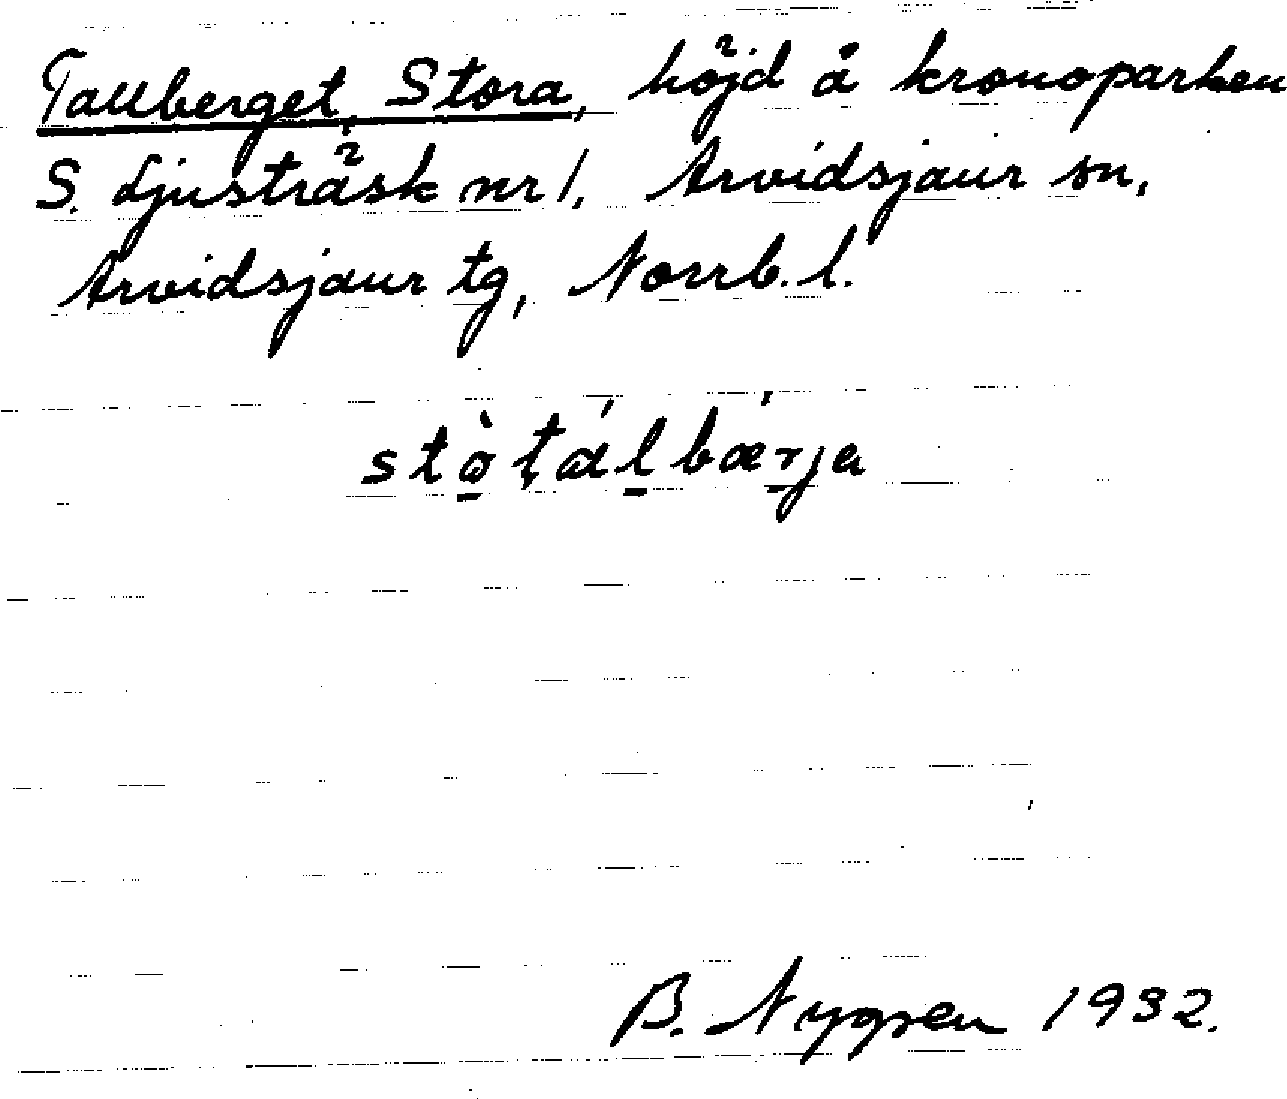 Tallberget, Stora, höjd å kronoparken
S. Ljusträsk nr 1, Arvidsjaur sn,
Arvidsjaur tg, Norrb. l.
B. Nygren 1932.